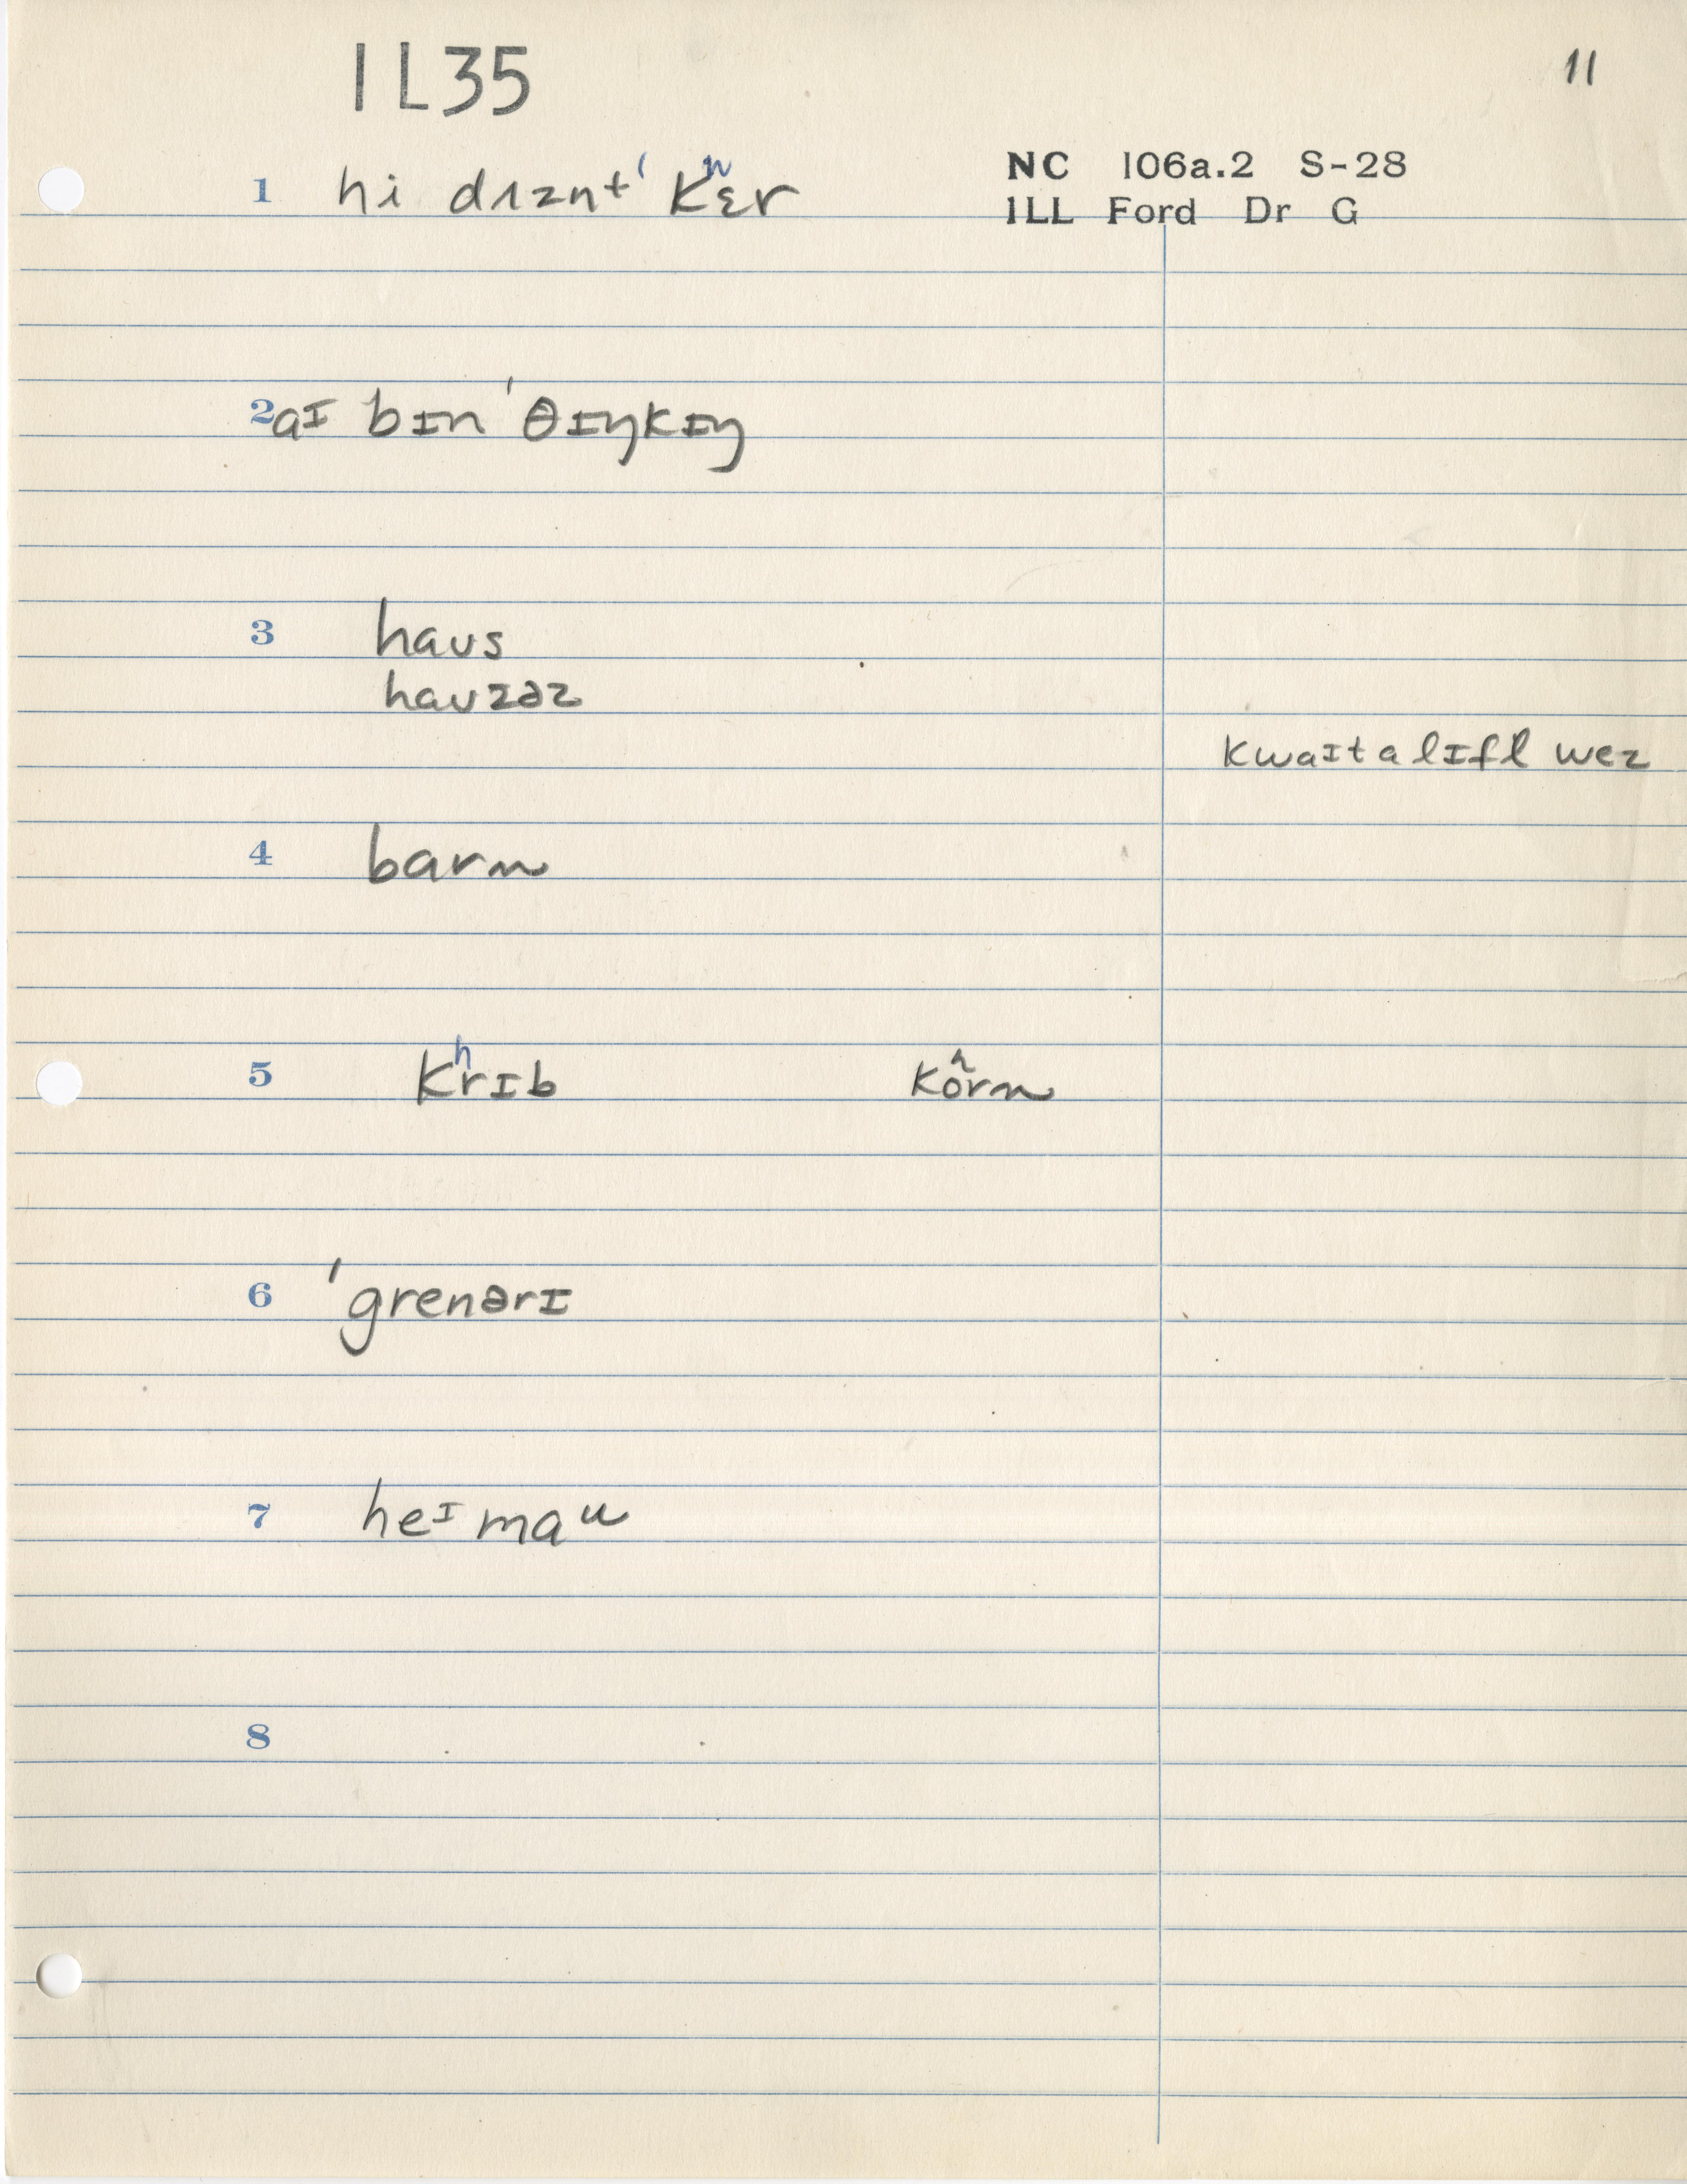 IL35
11
NC 106a.2 S-28
ILL Ford Dr G
1 hi dɪznt ˈkʰɛr
2 aɪ bɪn ˈθɪŋkɪŋ
3 haʊs
haʊzəz
kwaɪt a lɪtl wez
4 barn
5 kʰrɪb kʰôrn
6 ˈgrenərɪ
7 heɪmaᵘ
8